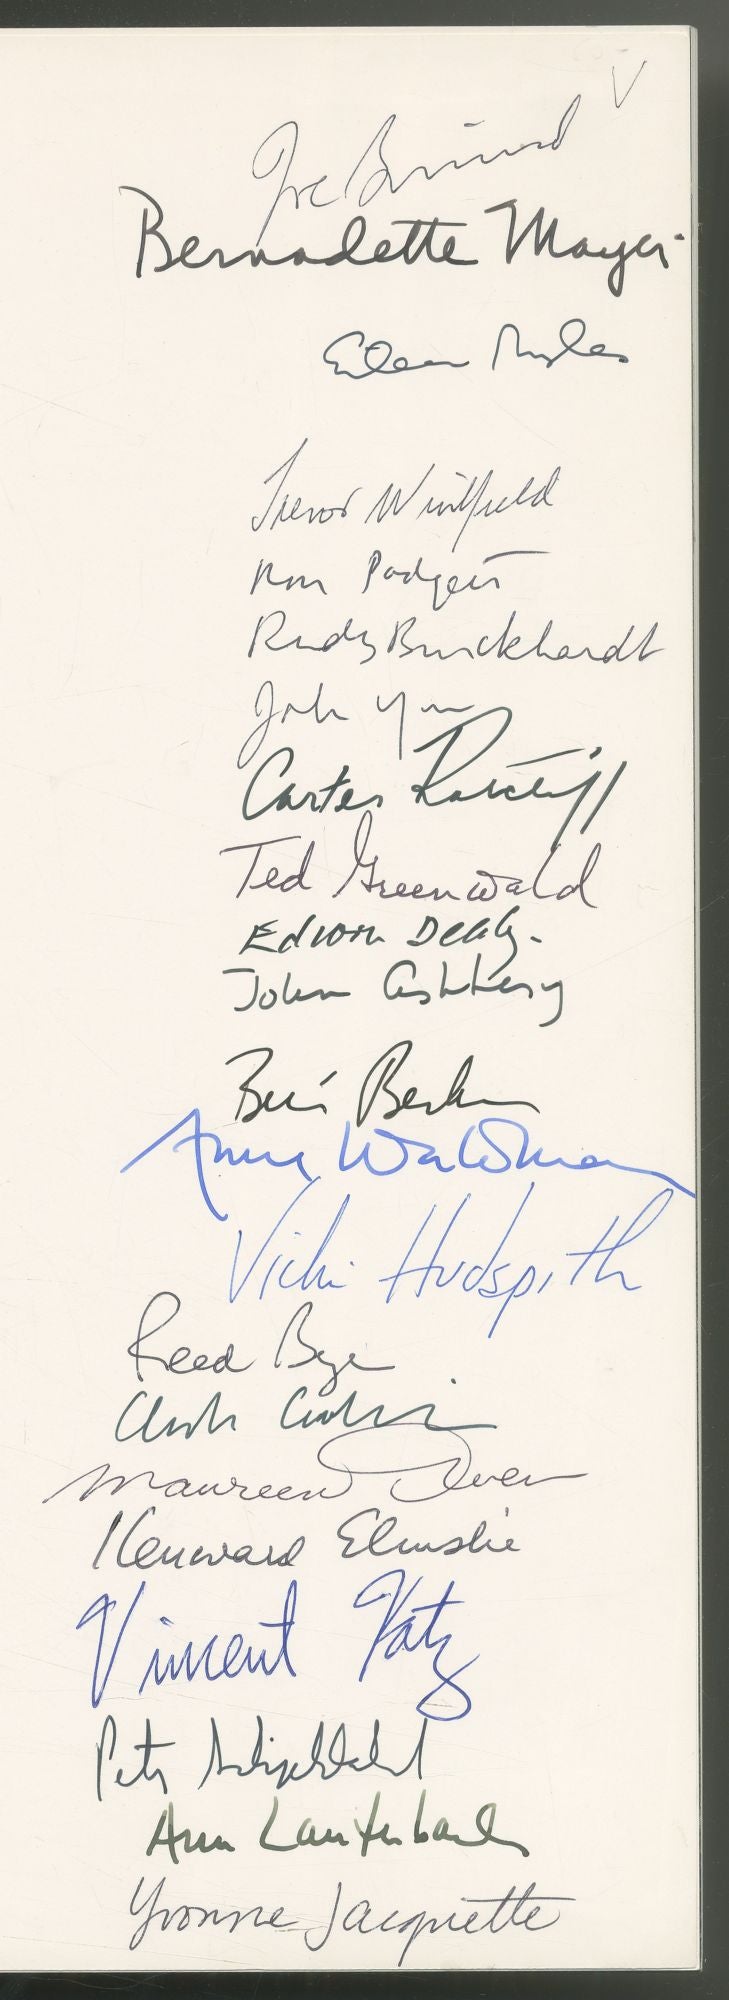 Joe Brainard
Bernadette Mayer
Eileen Myles
Trevor Winkfield
Ron Padgett
Rudy Burckhardt
John Yau
Carter Ratcliff
Ted Greenwald
Edwin Denby.
John Ashbery
Bill Berkson
Anne Waldman
Vicki Hudspith
Reed Bye
Clark Coolidge
Maureen Owen
Kenward Elmslie
Vincent Katz
Peter Schjeldahl
Ann Lauterbach
Yvonne Jacquette